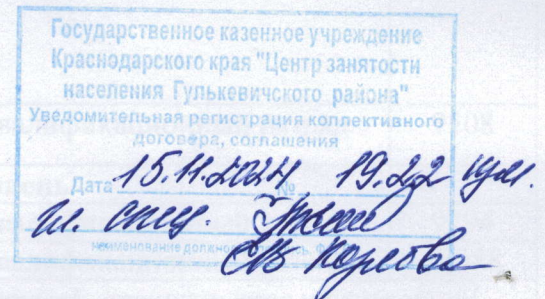 Государственное казенное учреждение
Краснодарского края "Центр занятости
населения Гулькевичского района"
Уведомительная регистрация коллективного
договора, соглашения
Дата 15.11.2024 № 19.22
спец.
наименование